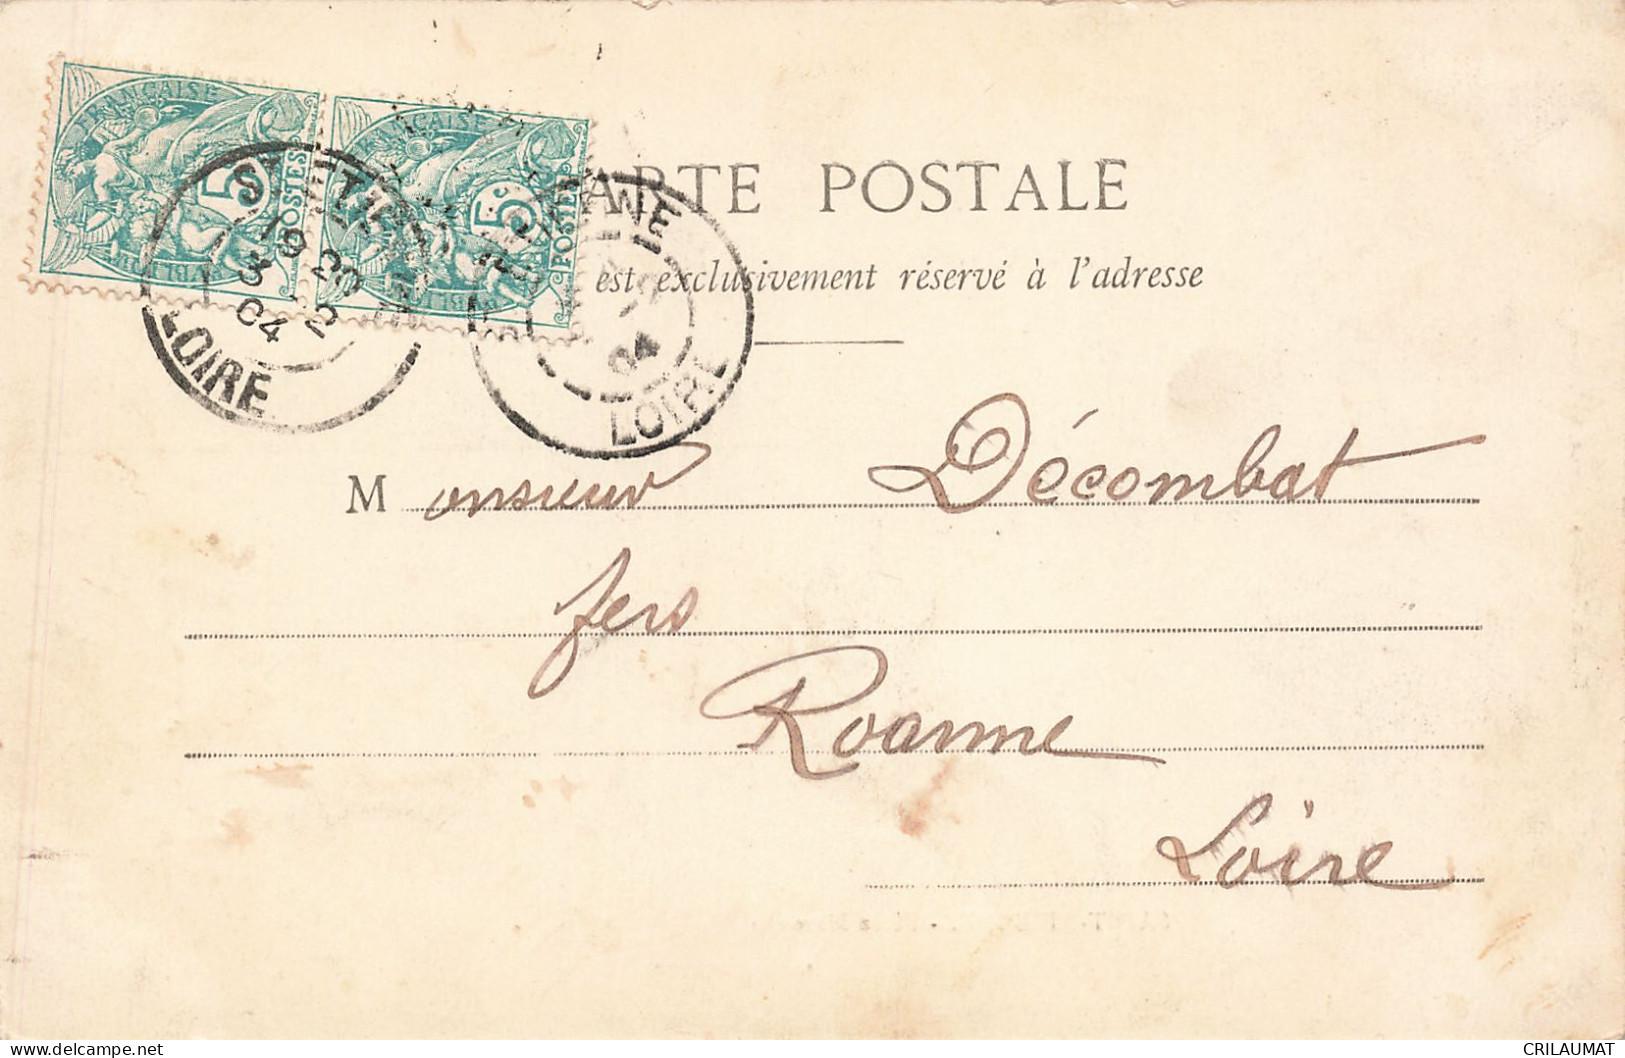 FRANÇAISE
5
POSTES
FRANÇAISE
5
POSTES
ST ETIENNE
19 20
3 -2
04
LOIRE
04
LOIRE
CARTE POSTALE
est exclusivement réservé à l'adresse
Monsieur Décombat
fers
Roanne
Loire
delcampe.net
CRILAUMAT